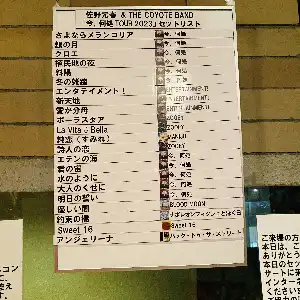 佐野元春 & THE COYOTE BAND
今、何処TOUR 2023』セットリスト
さよならメランコリア 今、何処
銀の月 今、何処
クロエ 今、何処
植民地の夜 今、何処
斜陽 今、何処
冬の雑踏 今、何処
エンタテイメント! ENTERTAINMENT!
新天地 ENTERTAINMENT!
愛が分母 ENTERTAINMENT!
ポーラスタア COYOTE
La Vita è Bella ZOOEY
純恋(すみれ) MANIJU
詩人の恋 ZOOEY
エデンの海 今、何処
君の宙 今、何処
水のように 今、何処
大人のくせに 今、何処
明日の誓い 今、何処
優しい闇 BLOOD MOON
約束の橋 ナポレオンフィッシュと泳ぐ日
Sweet 16 Sweet 16
アンジェリーナ バック・トゥ・ザ・ストリート
ご来場の方
本日は、
ありがとう
本日のセッ
サートに
インターネ
くださいま